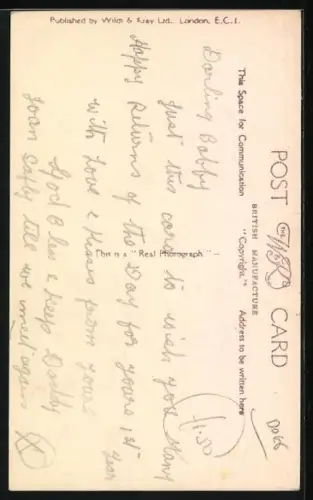 Published by Wildt & Kray Ltd., London, E.C.1.
POST CARD
THE W&K
BRITISH MANUFACTURE
"Copyright."
This Space for Communication
Address to be written here
This is a "Real Photograph"
Darling Bobby
Just this card to wish you many
Happy Returns of the Day for yours, 1st
with Love & Kisses from your
God Bless & Keep Daddy
Joan safly till we meet again X
1.50
D066